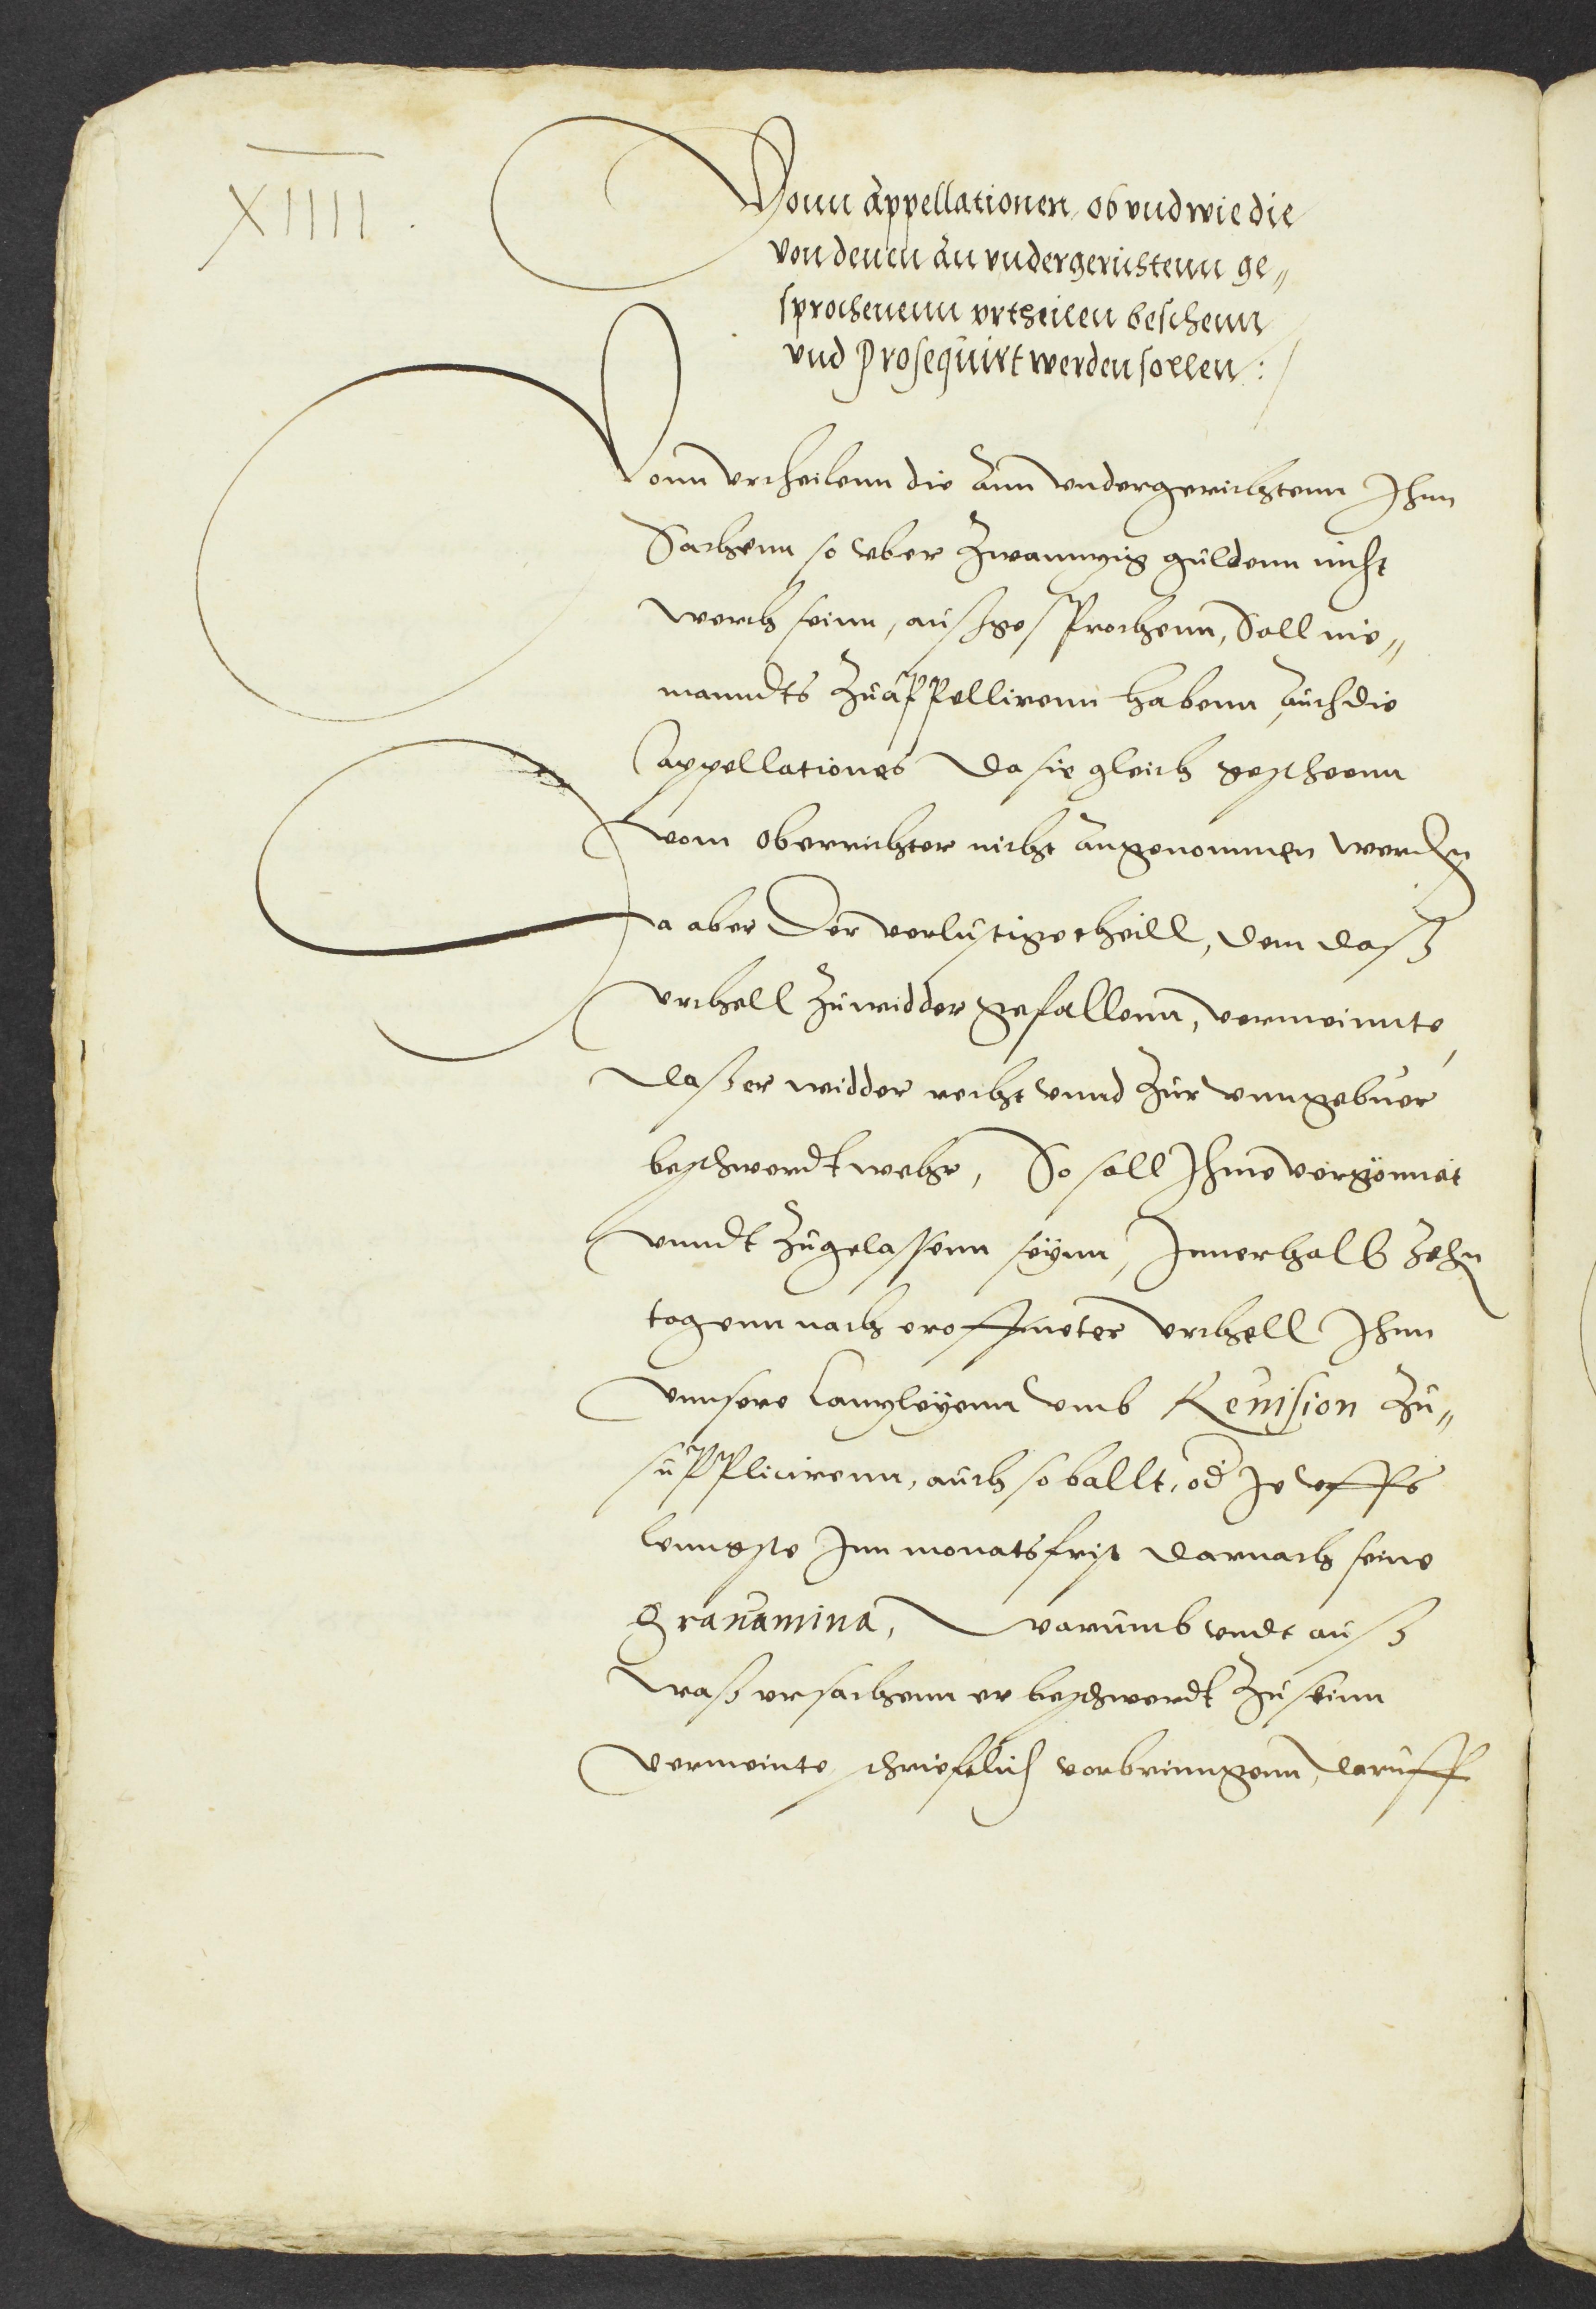 XIIII.
Vonn appellationen, ob vnd wie die
von denen an vndergerichtenn ge„
sprochenenn vrtheilen beschenn
vnd Prosequirt werden sollen:
Vonn vrtheilenn die Ann vndergerichtenn Ihnn
Sachenn so vber Zwanntzig guldenn nicht
werth seinn, außgesprochenn, Soll nie„
manndts Zu appellirenn habenn, auch die
appellationes da sie gleich geschehenn
vom Oberrichter nicht angenommen werden
Da aber Der verlustige theill, dem daß
vrthell zuwidder gefallenn, vermeinnte,
daß er widder recht vnnd Zur vnngebuer
beschwerdt wehr, So soll Ihme vergönnet
vnndt Zugelassenn seÿnn, Innerhalb Zehn
tagenn nach eroffneter vrthell Ihnn
vnnsere Canzleÿenn vmb Reuision Zu„
supplicirenn, auch so ballt, od Je vffs
lenngste Inn monatsfrist darnach seine
grauamina, warumb vndt auß
waß vrsachenn er beschwerdt Zu seinn
vermeinte schriefftlich vorbringenn, daruff